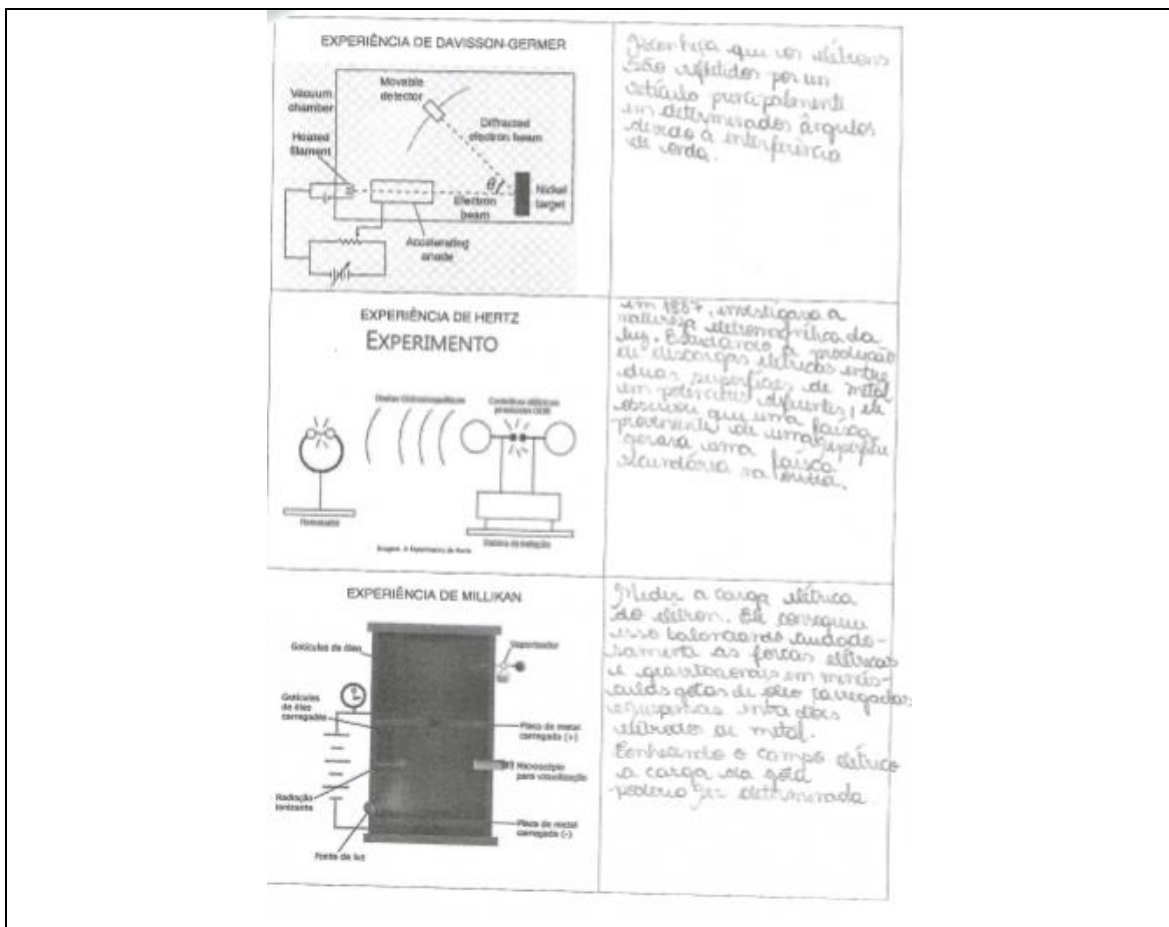 EXPERIÊNCIA DE DAVISSON-GERMER
Movable
detector
Vacuum
chamber
Diffracted
electron beam
Heated
filament
θ
Nickel
target
Electron
beam
Accelerating
anode
que os elétrons
São refletidos por um
retículo principalmente
em determinados ângulos
devido à interferência
de onda.
EXPERIÊNCIA DE HERTZ
EXPERIMENTO
Ondas Eletromagnéticas
Centelhas elétricas
produzem OEM
Ressonador
Imagem: O Experimento de Hertz
em 1887, investigava a
natureza eletromagnética da
luz. Estudando a produção
de discargas elétricas entre
duas superfícies de metal
em potenciais diferentes, ele
observou que uma faísca
proveniente de uma superfície
gerava uma faísca
secundária na outra.
EXPERIÊNCIA DE MILLIKAN
Gotículas de óleo
Vaporizador
Gotículas
de óleo
carregadas
Placa de metal
carregada (+)
Microscópio
para visualização
Radiação
ionizante
Placa de metal
carregada (-)
Fonte de luz
Medir a carga elétrica
do elétron. Ele conseguiu
isso balanceando cuidado-
samente as forças elétricas
e gravitacionais em minús-
culas gotas de óleo carregadas
suspensas entre dois
eletrodos de metal.
Conhecendo o campo elétrico
a carga da gota
poderia ser determinada